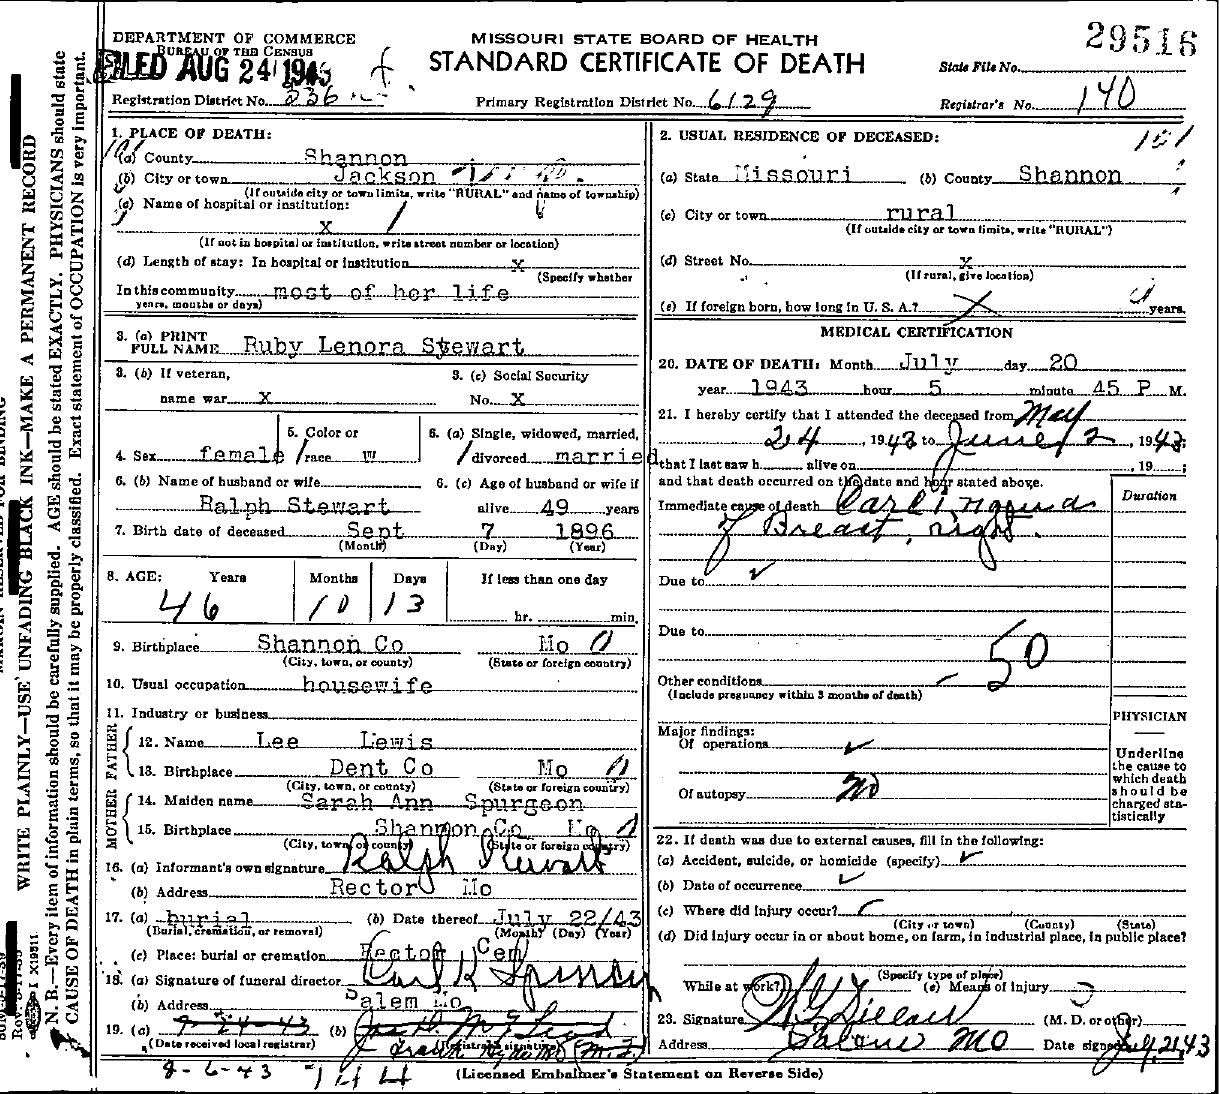 29516
DEPARTMENT OF COMMERCE
BUREAU OF THE CENSUS
MISSOURI STATE BOARD OF HEALTH
STANDARD CERTIFICATE OF DEATH
FILED AUG 24 1943
State File No.
Registration District No. 336
Primary Registration District No. 6129
Registrar's No. 140
1. PLACE OF DEATH:
(a) County Shannon
(b) City or town Jackson
(If outside city or town limits, write "RURAL" and name of township)
(c) Name of hospital or institution:
X
(If not in hospital or institution, write street number or location)
(d) Length of stay: In hospital or institution X
(Specify whether
In this community most of her life
years, months or days)
3. (a) PRINT
FULL NAME Ruby Lenora Stewart
3. (b) If veteran,
name war X
3. (c) Social Security
No. X
4. Sex female
5. Color or
race W
6. (a) Single, widowed, married,
divorced married
6. (b) Name of husband or wife
Ralph Stewart
6. (c) Age of husband or wife if
alive 49 years
7. Birth date of deceased Sept 7 1896
(Month) (Day) (Year)
8. AGE: Years Months Days If less than one day
46 10 13 hr. min.
9. Birthplace Shannon Co Mo
(City, town, or county) (State or foreign country)
10. Usual occupation housewife
11. Industry or business
FATHER
12. Name Lee Lewis
13. Birthplace Dent Co Mo
(City, town, or county) (State or foreign country)
MOTHER
14. Maiden name Sarah Ann Spurgeon
15. Birthplace Shannon Co Mo
(City, town, or county) (State or foreign country)
16. (a) Informant's own signature Ralph Stewart
(b) Address Rector Mo
17. (a) burial (b) Date thereof July 22/43
(Burial, cremation, or removal) (Month) (Day) (Year)
(c) Place: burial or cremation Rector Cem
18. (a) Signature of funeral director Carl K
(b) Address Salem Mo
19. (a) 9-24-43 (b)
(Date received local registrar) (Registrar's signature)
8-6-43 144
(Licensed Embalmer's Statement on Reverse Side)
2. USUAL RESIDENCE OF DECEASED:
151
(a) State Missouri (b) County Shannon
(c) City or town rural
(If outside city or town limits, write "RURAL")
(d) Street No. X
(If rural, give location)
(e) If foreign born, how long in U. S. A.? X years.
MEDICAL CERTIFICATION
20. DATE OF DEATH: Month July day 20
year 1943 hour 5 minute 45 P M.
21. I hereby certify that I attended the deceased from May
24, 1943 to June 2, 1943;
that I last saw h alive on , 19 ;
and that death occurred on the date and hour stated above.
Duration
Immediate cause of death Carcinoma
of Breast, right.
Due to
Due to
50
Other conditions
(Include pregnancy within 3 months of death)
PHYSICIAN
Major findings:
Of operations
Of autopsy no
Underline
the cause to
which death
should be
charged sta-
tistically
22. If death was due to external causes, fill in the following:
(a) Accident, suicide, or homicide (specify)
(b) Date of occurrence
(c) Where did injury occur?
(City or town) (County) (State)
(d) Did injury occur in or about home, on farm, in industrial place, in public place?
(Specify type of place)
While at work? (e) Means of injury
23. Signature (M. D. or other)
Address Salem MO Date signed July 21, 43
WRITE PLAINLY—USE UNFADING BLACK INK—MAKE A PERMANENT RECORD
N. B.—Every item of information should be carefully supplied. AGE should be stated EXACTLY. PHYSICIANS should state
CAUSE OF DEATH in plain terms, so that it may be properly classified. Exact statement of OCCUPATION is very important.